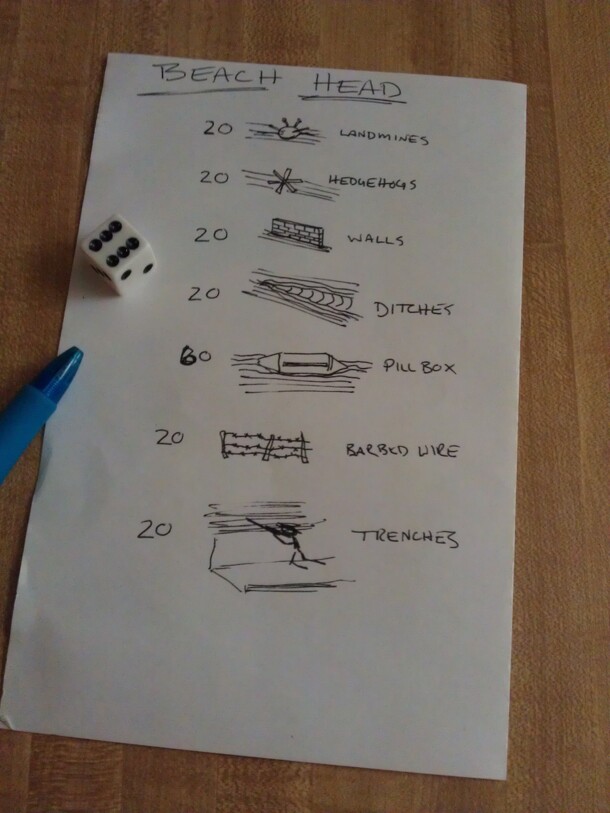 BEACH HEAD
20 LANDMINES
20 HEDGEHOGS
20 WALLS
20 DITCHES
60 PILL BOX
20 BARBED WIRE
20 TRENCHES